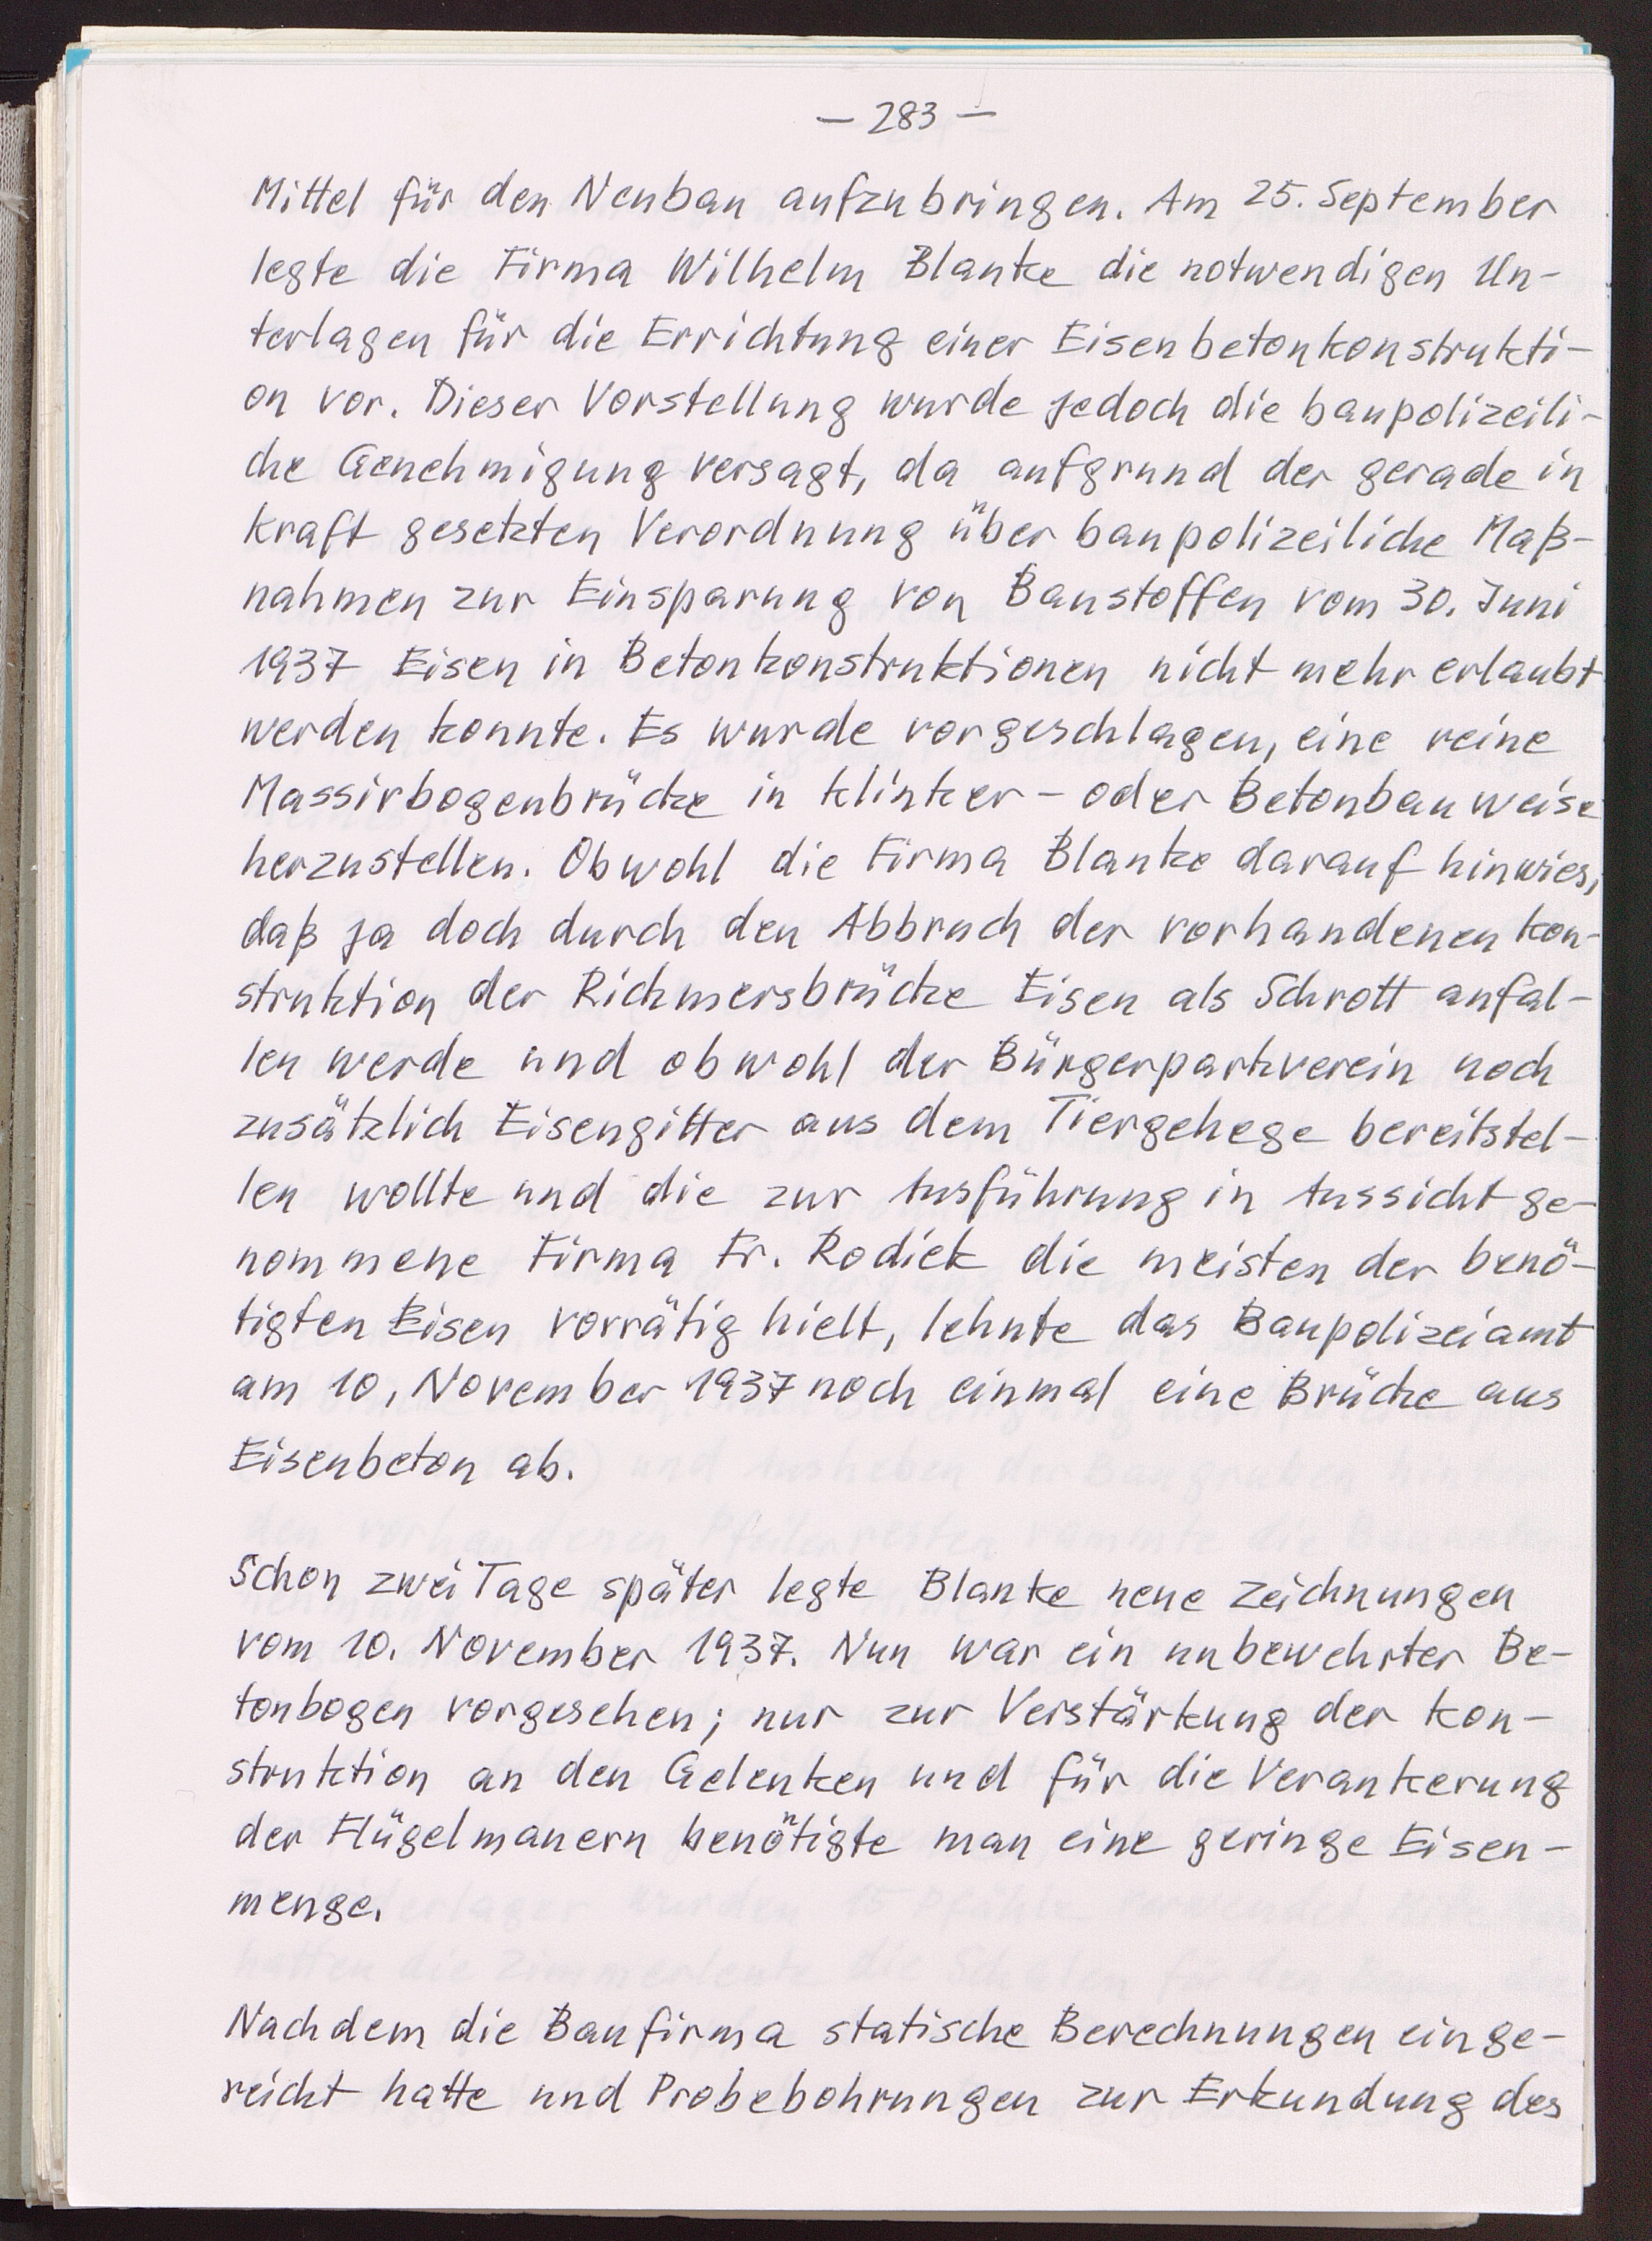 — 283 —
Mittel für den Neubau aufzubringen. Am 25. September
legte die Firma Wilhelm Blanke die notwendigen Un-
terlagen für die Errichtung einer Eisenbetonkonstrukti-
on vor. Dieser Vorstellung wurde jedoch die baupolizeili-
che Genehmigung versagt, da aufgrund der gerade in
Kraft gesetzten Verordnung über baupolizeiliche Maß-
nahmen zur Einsparung von Baustoffen vom 30. Juni
1937 Eisen in Betonkonstruktionen nicht mehr erlaubt
werden konnte. Es wurde vorgeschlagen, eine reine
Massivbogenbrücke in Klinker- oder Betonbauweise
herzustellen. Obwohl die Firma Blanke darauf hinwies,
daß ja doch durch den Abbruch der vorhandenen Kon-
struktion der Rickmersbrücke Eisen als Schrott anfal-
len werde und obwohl der Bürgerparkverein noch
zusätzlich Eisengitter aus dem Tiergehege bereitstel-
len wollte und die zur Ausführung in Aussicht ge-
nommene Firma Fr. Rodiek die meisten der benö-
tigten Eisen vorrätig hielt, lehnte das Baupolizeiamt
am 10. November 1937 noch einmal eine Brücke aus
Eisenbeton ab.
Schon zwei Tage später legte Blanke neue Zeichnungen
vom 10. November 1937. Nun war ein unbewehrter Be-
tonbogen vorgesehen; nur zur Verstärkung der Kon-
struktion an den Gelenken und für die Verankerung
der Flügelmauern benötigte man eine geringe Eisen-
menge.
Nachdem die Baufirma statische Berechnungen einge-
reicht hatte und Probebohrungen zur Erkundung des